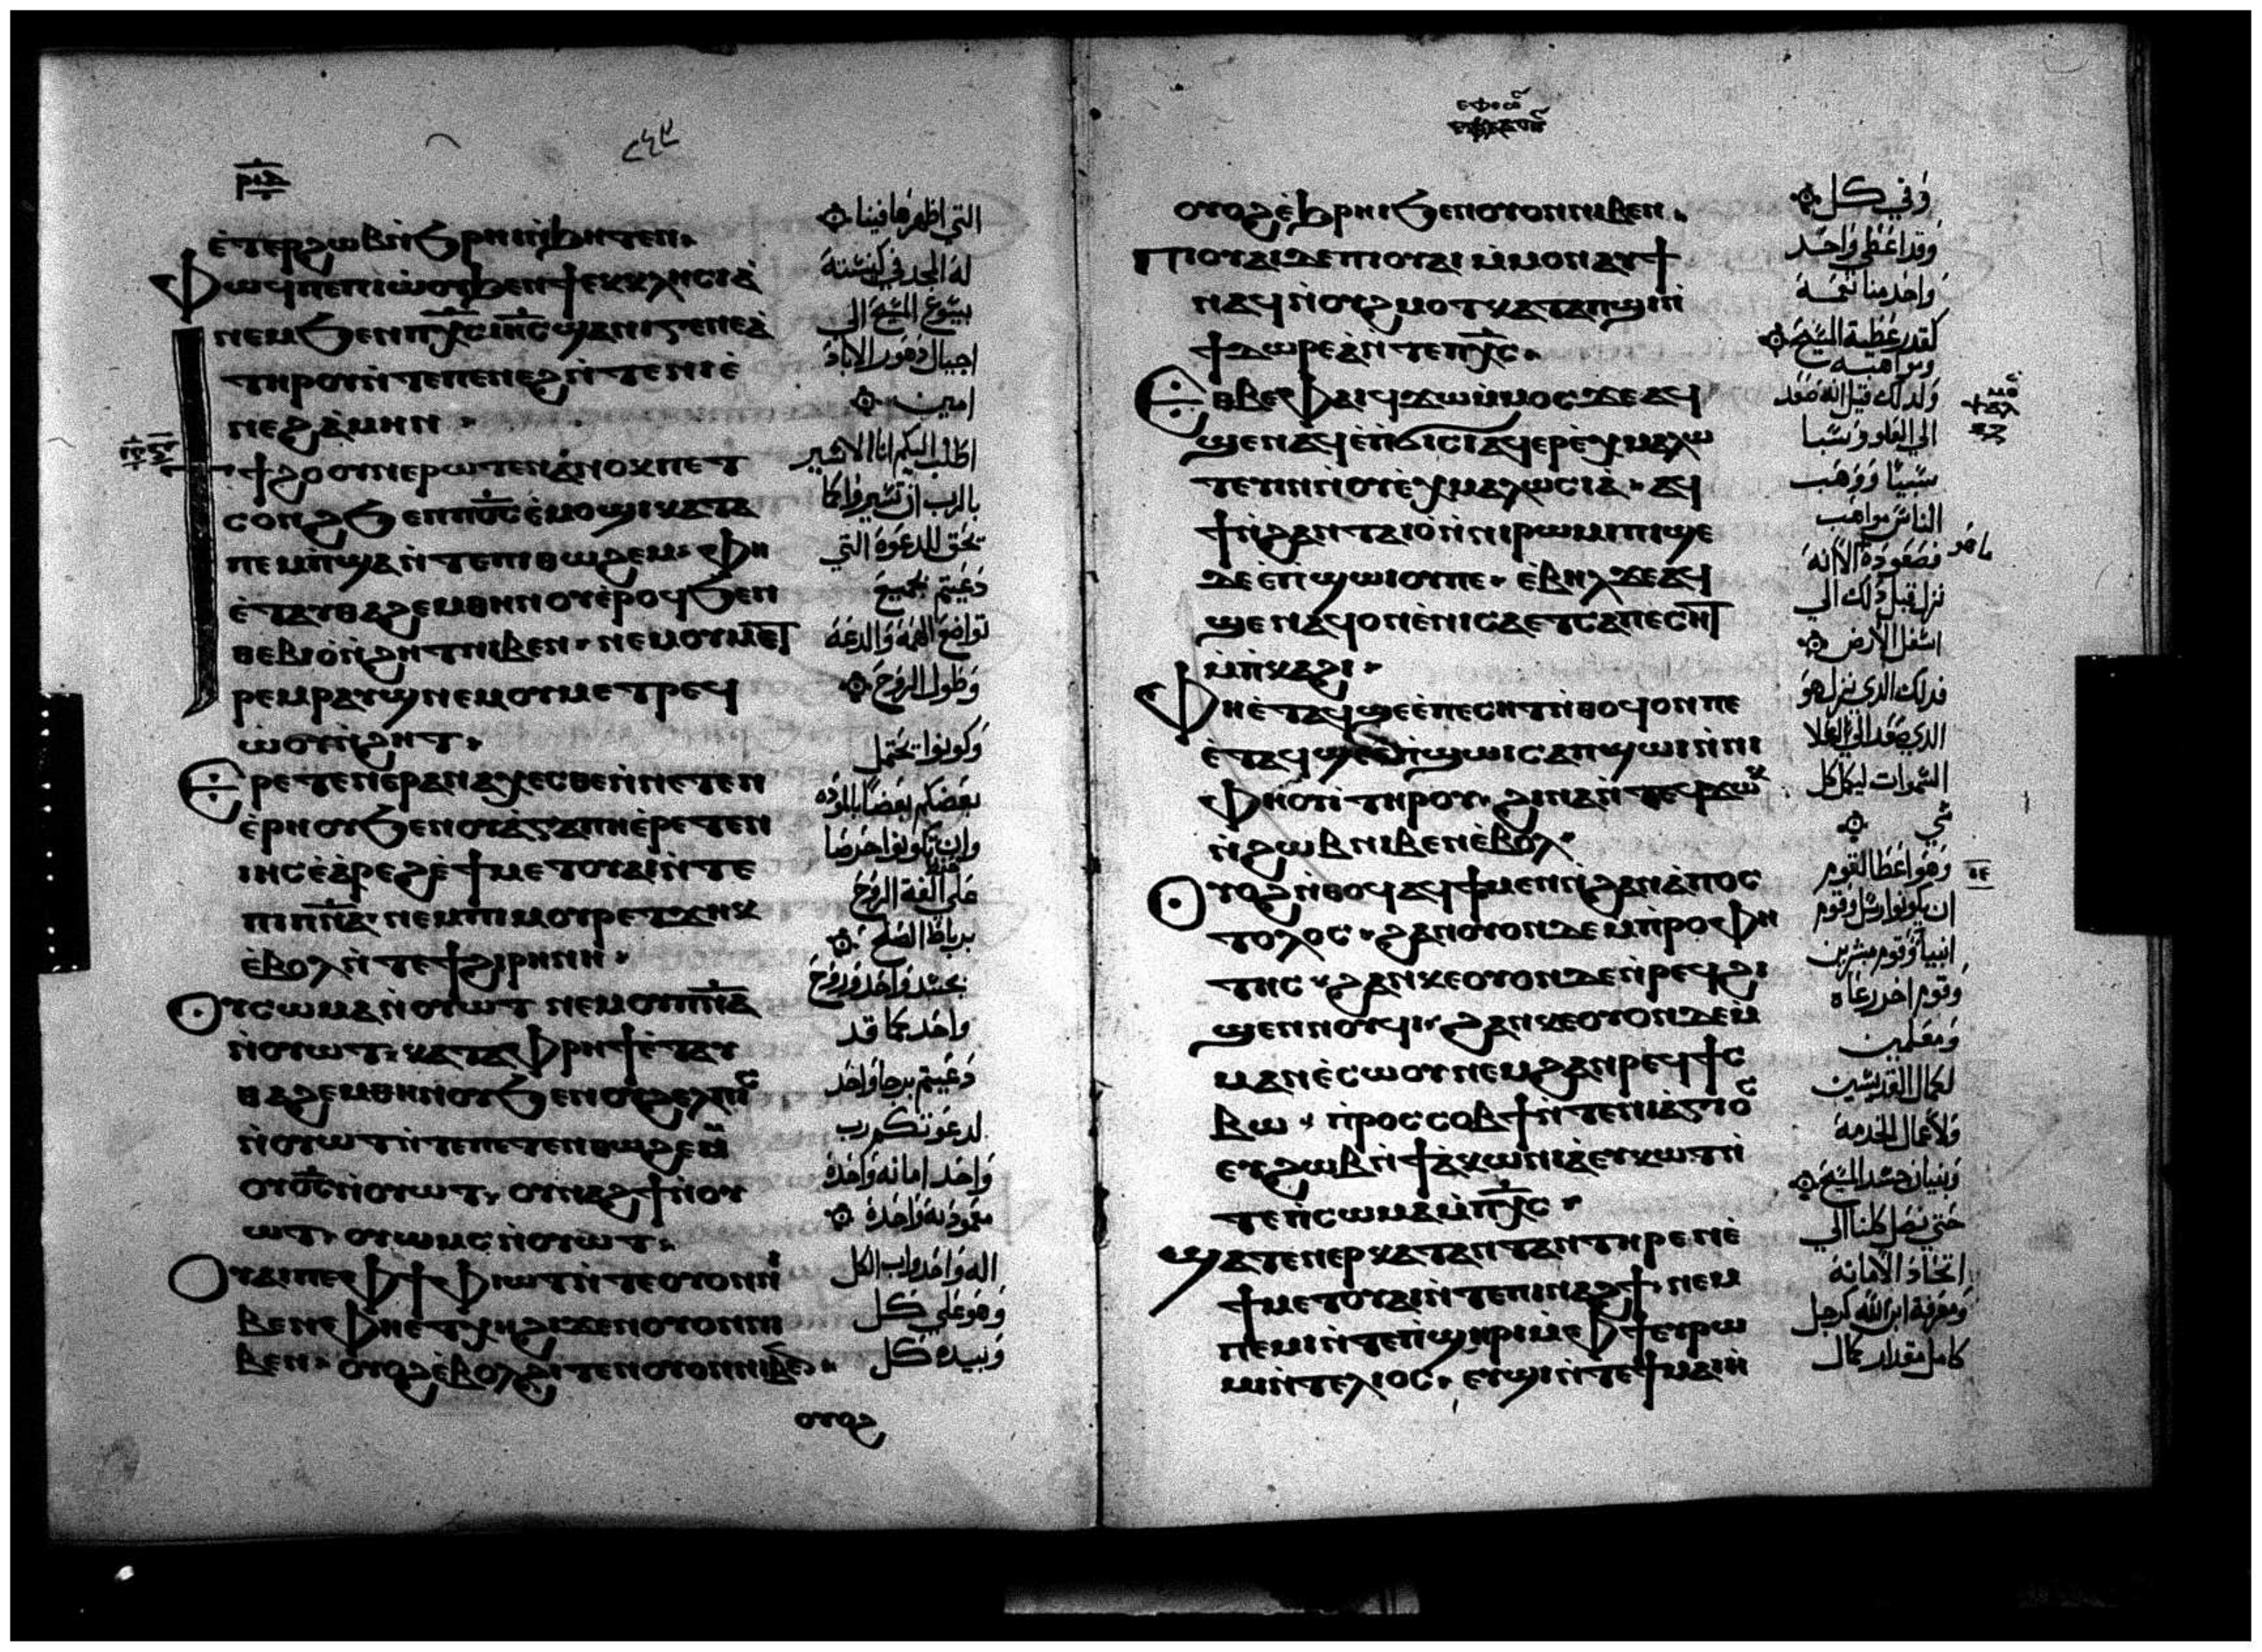 ⲉ̀ⲧⲉⲣϩⲱⲃⲛ̀ϧⲣⲏⲓⲛ̀ϧⲏⲧⲉⲛ
ⲫⲱϥⲡⲉⲡⲓⲱ̀ⲟⲩϧⲉⲛϯⲉⲕⲕⲗⲏⲥⲓⲁ̀
ⲛⲉⲙϧⲉⲛⲡⲭ̅ⲥⲓⲏ̅ⲥϣⲁⲛⲓⲅⲉⲛⲉⲁ̀
ⲧⲏⲣⲟⲩⲛ̀ⲧⲉⲡⲉⲛⲉϩⲛ̀ⲧⲉⲛⲓⲉ̀
ⲛⲉϩⲁ̀ⲙⲏⲛ
ϯϩⲟⲟⲩⲛⲉⲣⲱⲧⲉⲛⲁ̀ⲛⲟⲕⲡⲉⲧ
ⲥⲟⲛϩϧⲉⲛⲡⲟ̅ⲥⲉ̀ⲙⲟϣⲓⲕⲁⲧⲁ
ⲡⲉⲙⲡ̀ϣⲁⲛ̀ⲧⲉⲡⲓⲑⲱϩⲉⲙ ⲫⲏ
ⲉ̀ⲧⲁⲩⲑⲁϩⲉⲙⲑⲏⲛⲟⲩⲉ̀ⲣⲟϥϧⲉⲛ
ⲑⲉⲃⲓⲟ̀ⲛ̀ϩⲏⲧⲛⲓⲃⲉⲛ ⲛⲉⲙⲟⲩⲙⲉⲧ
ⲣⲉⲙⲣⲁⲩϣⲛⲉⲙⲟⲩⲙⲉⲧⲣⲉϥ
ⲱ̀ⲟⲩⲛ̀ϩⲏⲧ
ⲉⲣⲉⲧⲉⲛⲉⲣⲁⲛⲁⲭⲉⲥⲑⲉⲛ̀ⲛⲉⲧⲉⲛ
ⲉ̀ⲣⲏⲟⲩϧⲉⲛⲟⲩⲁ̀ⲅⲁⲡⲏⲉ̀ⲣⲉⲧⲉⲛ
ⲓⲏⲥⲉ̀ⲁ̀ⲣⲉϩⲉ̀ϯⲙⲉⲧⲟⲩⲁⲓⲛ̀ⲧⲉ
ⲡⲓⲡⲛ̅ⲁ ⲛⲉⲙⲡⲓⲙⲟⲩⲣⲉⲧϫⲏⲕ
ⲉ̀ⲃⲟⲗⲛ̀ⲧⲉϯϩⲓⲣⲏⲛⲏ
ⲟⲩⲥⲱⲙⲁⲛ̀ⲟⲩⲱⲧ ⲛⲉⲙⲟⲩⲡⲛ̅ⲁ
ⲛ̀ⲟⲩⲱⲧ ⲕⲁⲧⲁⲫⲣⲏϯⲉ̀ⲧⲁⲩ
ⲑⲁϩⲉⲙⲑⲏⲛⲟⲩϧⲉⲛⲟⲩϩⲉⲗⲡⲓⲥ
ⲛ̀ⲟⲩⲱⲧⲛ̀ⲧⲉⲡⲉⲧⲉⲛⲑⲱϩⲉⲙ
ⲟⲩⲟ̅ⲥⲛ̀ⲟⲩⲱⲧ ⲟⲩⲛⲁϩϯⲛ̀ⲟⲩ
ⲱⲧ ⲟⲩⲱⲙⲥⲛ̀ⲟⲩⲱⲧ
ⲟⲩⲁⲓⲡⲉⲫϯⲫⲓⲱⲧⲛ̀ⲧⲉⲟⲩⲟⲛⲛⲓ
ⲃⲉⲛⲉⲫⲏⲉⲧⲭⲏϩⲓϫⲉⲛⲟⲩⲟⲛⲛⲓ
ⲃⲉⲛ ⲟⲩⲟϩⲉ̀ⲃⲟⲗϩⲓⲧⲉⲛⲟⲩⲟⲛⲛⲓⲃⲉⲛ
ⲟⲩⲟϩ
التي اظهرها فينا
له المجد في كنيسته
بيسوع المسيح الي
اجيال دهور الاباد
امين
اطلب اليكم انا الاسير
بالرب ان تسيروا كما
تحق للدعوة التي
دعيتم بجميع
تواضع الهمه والدعة
وطول الروح
وكونوا يحتمل
بعضكم بعضا بالموده
وان تكونوا حرصا
علي الفة الروح
برباط الصلح
بجسد واحد وروح
واحد كما قد
دعيتم برجا واحد
لدعوتكم رب
واحد امانه واحدة
معمودية واحدة
اله واحد واب الكل
وهو علي كل
وبيده كل
ⲟⲩⲟϩⲉ̀ϧⲣⲏⲓϧⲉⲛⲟⲩⲟⲛⲛⲓⲃⲉⲛ
ⲡⲓⲟⲩⲁⲓⲇⲉⲡⲓⲟⲩⲁⲓ ⲙ̀ⲙⲟⲛⲁⲩϯ
ⲛⲁϥⲛ̀ⲟⲩϩⲙⲟⲧⲕⲁⲧⲁⲡϣⲓⲛ̀
ϯⲇⲱⲣⲉⲁ̀ⲛ̀ⲧⲉⲡⲭ̅ⲥ
ⲉⲑⲃⲉⲫⲁⲓϥϫⲱⲙ̀ⲙⲟⲥϫⲉⲁϥ
ϣⲉⲛⲁϥⲉ̀ⲡ̀ϭⲓⲥⲓⲁϥⲉⲣⲉ̀ⲭⲙⲁⲗⲱ
ⲧⲉⲩⲓⲛⲛ̀ⲟⲩⲉ̀ⲭⲙⲁⲗⲱⲥⲓⲁ̀ ⲁϥ
ϯⲛ̀ϩⲁⲛⲧⲁⲓⲟ̀ⲛ̀ⲛⲓⲣⲱⲙⲓⲡⲓϣⲉ
ⲇⲉⲉ̀ⲡ̀ϣⲱⲓⲟⲩⲡⲉ ⲉ̀ⲃⲏⲗϫⲉⲁϥ
ϣⲉⲛⲁϥⲟⲛⲉ̀ⲛⲓⲥⲁⲉⲧⲥⲁⲡⲉⲥⲏⲧ
ⲙ̀ⲡ̀ⲕⲁϩⲓ
ⲫⲏⲉ̀ⲧⲁϥϣⲉⲉ̀ⲡⲉⲥⲏⲧⲛ̀ⲑⲟϥⲟⲛⲡⲉ
ⲉ̀ⲧⲁϥϣⲉⲉ̀ⲡ̀ϣⲱⲓⲥⲁⲡϣⲱⲓⲛ̀ⲛⲓ
ⲫⲏⲟⲩⲓ̀ⲧⲏⲣⲟⲩ ϩⲓⲛⲁⲛ̀ⲧⲉϥϫⲱⲕ
ⲛ̀ϩⲱⲃⲛⲓⲃⲉⲛⲉ̀ⲃⲟⲗ
ⲟⲩⲟϩⲛ̀ⲑⲟϥⲁϥϯⲙⲉⲛⲛ̀ϩⲁⲛⲁ̀ⲡⲟⲥ
ⲧⲟⲗⲟⲥ ϩⲁⲛⲟⲩⲟⲛⲇⲉⲙ̀ⲡⲣⲟⲫⲏ
ⲧⲏⲥ ϩⲁⲛⲕⲉⲟⲩⲟⲛⲇⲉⲛ̀ⲣⲉϥϩⲓ
ϣⲉⲛⲛⲟⲩϥⲓ ϩⲁⲛⲕⲉⲟⲩⲟⲛⲇⲉⲙ̀
ⲙⲁⲛⲉ̀ⲥⲱⲟⲩⲛⲉⲙϩⲁⲛⲣⲉϥϯⲥ
ⲃⲱ ⲡ̀ⲣⲟⲥⲥⲟⲃϯⲛ̀ⲧⲉⲛⲓⲁ̀ⲅⲓⲟⲥ
ⲉⲩϩⲱⲃⲛ̀ϯⲁ̀ⲕⲱⲛⲓⲁ̀ⲉⲩⲕⲱⲧⲛ̀
ⲧⲉⲡ̀ⲥⲱⲙⲁⲙ̀ⲡⲭ̅ⲥ
ϣⲁⲧⲉⲛⲉⲣⲕⲁⲧⲁⲛⲧⲁⲛⲧⲏⲣⲉⲛⲉ̀
ϯⲙⲉⲧⲟⲩⲁⲓⲛ̀ⲧⲉⲡⲓⲛⲁϩϯ ⲛⲉⲙ
ⲡⲉⲙⲓⲛ̀ⲧⲉⲡ̀ϣⲏⲣⲓⲙ̀ⲫϯⲉⲩⲣⲱ
ⲙⲓⲛ̀ⲧⲉⲗⲓⲟⲥ ⲉⲩϣⲓⲛ̀ⲧⲉϯⲙⲁⲓⲏ̀
وفي كل
وقد اعطي واحد
واحد منا نعمة
كقدر عطية المسيح
ومواهبه
ولذلك قيل انه صعد
الي العلو وسبا
سبيا ووهب
الناس مواهب
ما هو
فصعوده الا انه
نزل قبل ذلك الي
اسفل الارض
فذلك الذي نزل هو
الذي صعد الي اعلا
السموات ليكمل كل
شي
وهو اعطا القوم
ان يكونوا رسل وقوم
انبيا وقوم مبشرين
وقوم اخر رعاه
ومعلمين
لكمال القديسين
ولاعمال الخدمة
وبنيان جسد المسيح
حتي نصل كلنا الي
اتحاد الامانة
ومعرفة ابن الله كرجل
كامل مقدار كمال